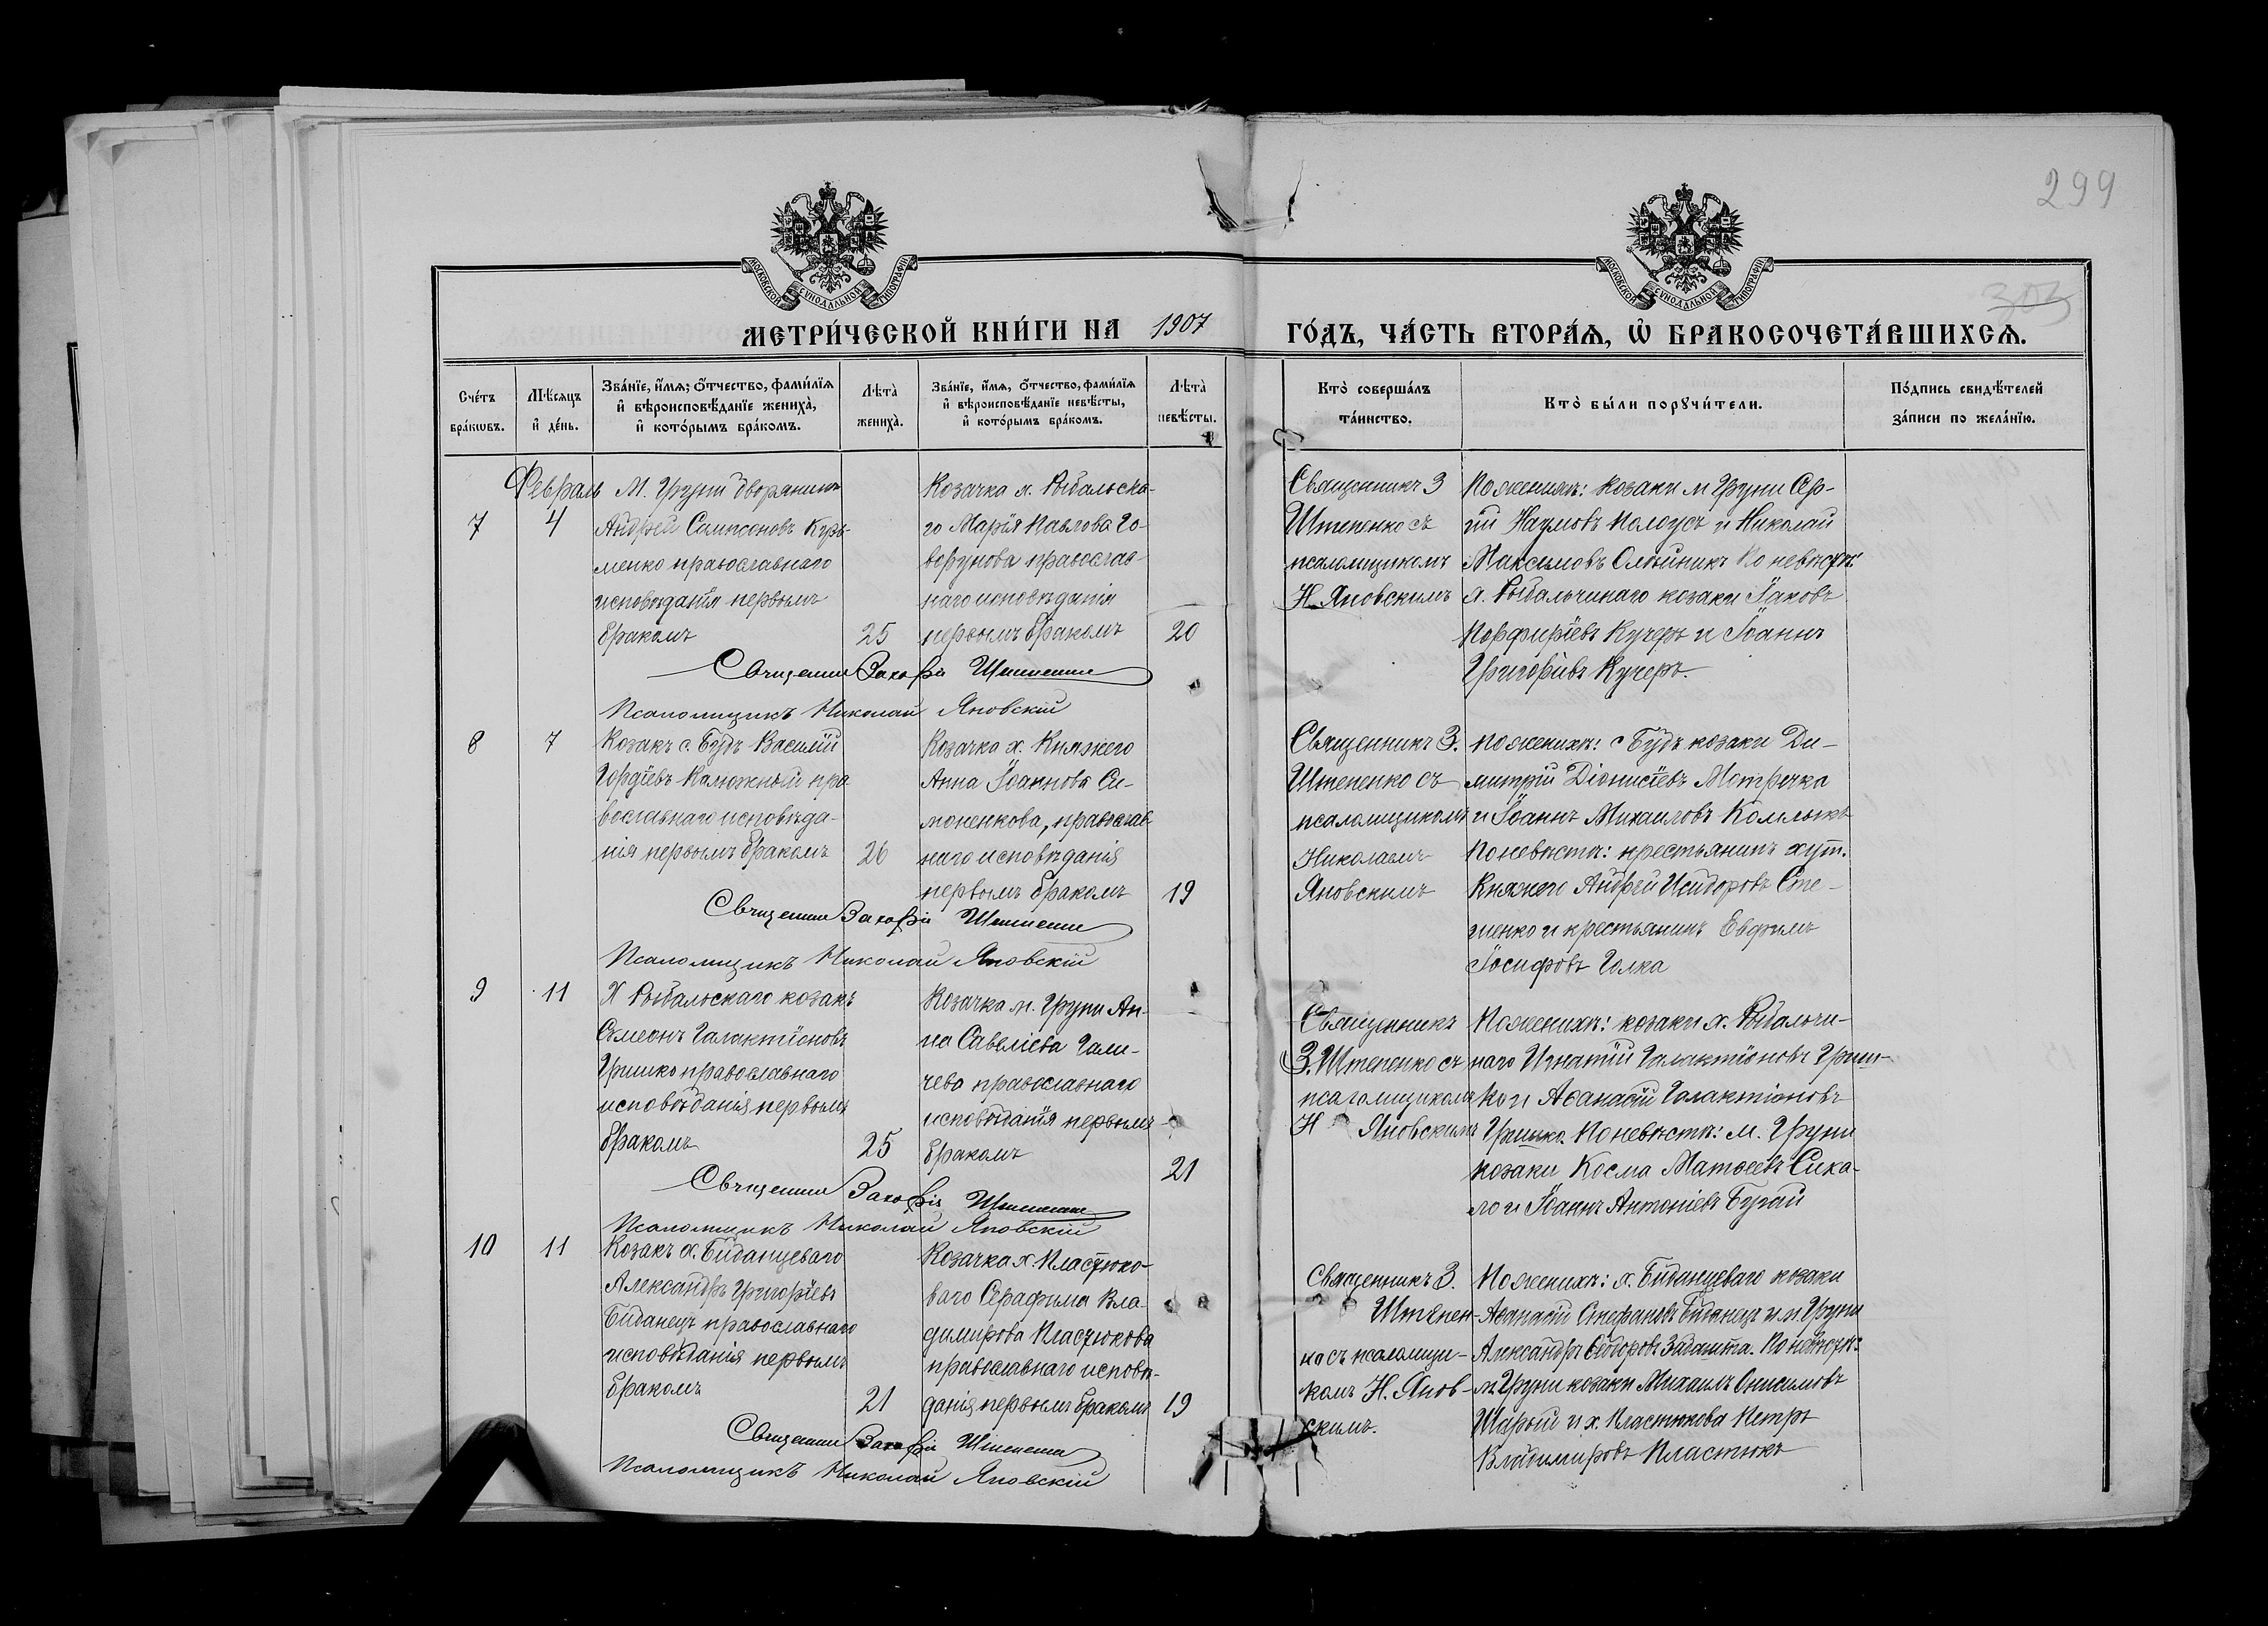 299
303
МОСКОВСКОЙ СѴНОДАЛЬНОЙ ТИПОГРАФІИ
МОСКОВСКОЙ СѴНОДАЛЬНОЙ ТИПОГРАФІИ
МЕТРИ́ЧЕСКОЙ КНИ́ГИ НА 1907 ГО́ДЪ, ЧА́СТЬ ВТОРА́Ѧ, Ѡ҆ БРАКОСОЧЕТА́ВШИХСѦ.
Сче́тъ
бра́кѡвъ.
Мѣ́сѧцъ
и҆ де́нь.
Зва́нїе, и҆́мѧ, ѻ҆́тчество, фами́лїѧ
и҆ вѣроисповѣ́данїе жениха̀,
и҆ кото́рымъ бра́комъ.
Лѣта̀
жениха̀.
Зва́нїе, и҆́мѧ, ѻ҆́тчество, фами́лїѧ
и҆ вѣроисповѣ́данїе невѣ́сты,
и҆ кото́рымъ бра́комъ.
Лѣта̀
невѣ́сты.
Кто̀ соверша́лъ
та́инство.
Кто̀ бы́ли порꙋчи́тели.
По́дпись свидѣ́телей
за́писи по жела́нїю.
Февраль
7
4
М. Груни дворянинъ
Андрей Сампсоновъ Кузь-
менко православнаго
исповѣданія первымъ
бракомъ
25
Козачка х. Рыбальска-
го Марія Павлова Го-
ворунова православ-
наго исповѣданія
первымъ бракомъ
20
Священникъ З
Штепенко съ
псаломщикомъ
Н. Яновскимъ
По женихѣ: козаки м Груни Сер-
гій Наумовъ Полоусъ и Николай
Максимовъ Олейникъ По невѣстѣ:
х. Рыбальчинаго козаки Іаковъ
Порфиріевъ Кучеръ и Іоаннъ
Григорьевъ Кучеръ.
Священник Захарій Штепенко
Псаломщикъ Николай Яновскій
8
7
Козакъ с. Будъ Василій
Гордіевъ Калюжный пра-
вославнаго исповѣда-
нія первымъ бракомъ
26
Козачка х. Княжего
Анна Іоаннова Си-
моненкова, православ-
наго исповѣданія
первымъ бракомъ
19
Священникъ З.
Штепенко съ
псаломщикомъ
Николаемъ
Яновскимъ
По женихѣ: с Будъ козаки Ди-
митрій Діонисіевъ Метрека
и Іоаннъ Михаиловъ
По невѣстѣ: крестьянинъ хут.
Княжего Андрей Исидоровъ Сте-
ценко и крестьянинъ Евфимъ
Іосифовъ Голка
Священник Захарій Штепенко
Псаломщикъ Николай Яновскій
9
11
Х Рыбальскаго козакъ
Симеонъ Галактіоновъ
Гришко православнаго
исповѣданія первымъ
бракомъ
25
Козачка м. Груни Ан-
на Савеліева Гали-
чева православнаго
исповѣданія первымъ
бракомъ
21
Священникъ
З. Штепенко съ
псаломщикомъ
Н Яновскимъ
По женихѣ: козаки х. Рыбальчи-
наго Игнатій Галактіоновъ Гриш-
ко и Аѳанасій Галактіоновъ
Гришко. По невѣстѣ: м. Груни
козаки Косма Матѳеевъ Сика-
ло и Іоаннъ Антоніевъ Бугай
Священник Захарій Штепенко
Псаломщикъ Николай Яновскій
10
11
Козакъ х. Биданцеваго
Александръ Григоріевъ
Биданецъ православнаго
исповѣданія первымъ
бракомъ
21
Козачка х. Пластюко-
ваго Серафима Вла-
димирова Пластюкова
православнаго исповѣ-
данія первымъ бракомъ
19
Священникъ З.
Штепен-
ко съ псаломщи-
комъ Н. Янов-
скимъ.
По женихѣ: х. Биданцеваго козаки
Аѳанасій Стефановъ Биданецъ и м Груни
Александръ Ѳедоровъ По невѣстѣ:
м. Груни козаки Михаилъ Онисимовъ
Шарый и х. Пластюкова Петръ
Владимировъ Пластюкъ
Священник Захарій Штепенко
Псаломщикъ Николай Яновскій